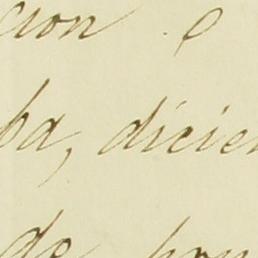 cion
ba, dicien
de hon